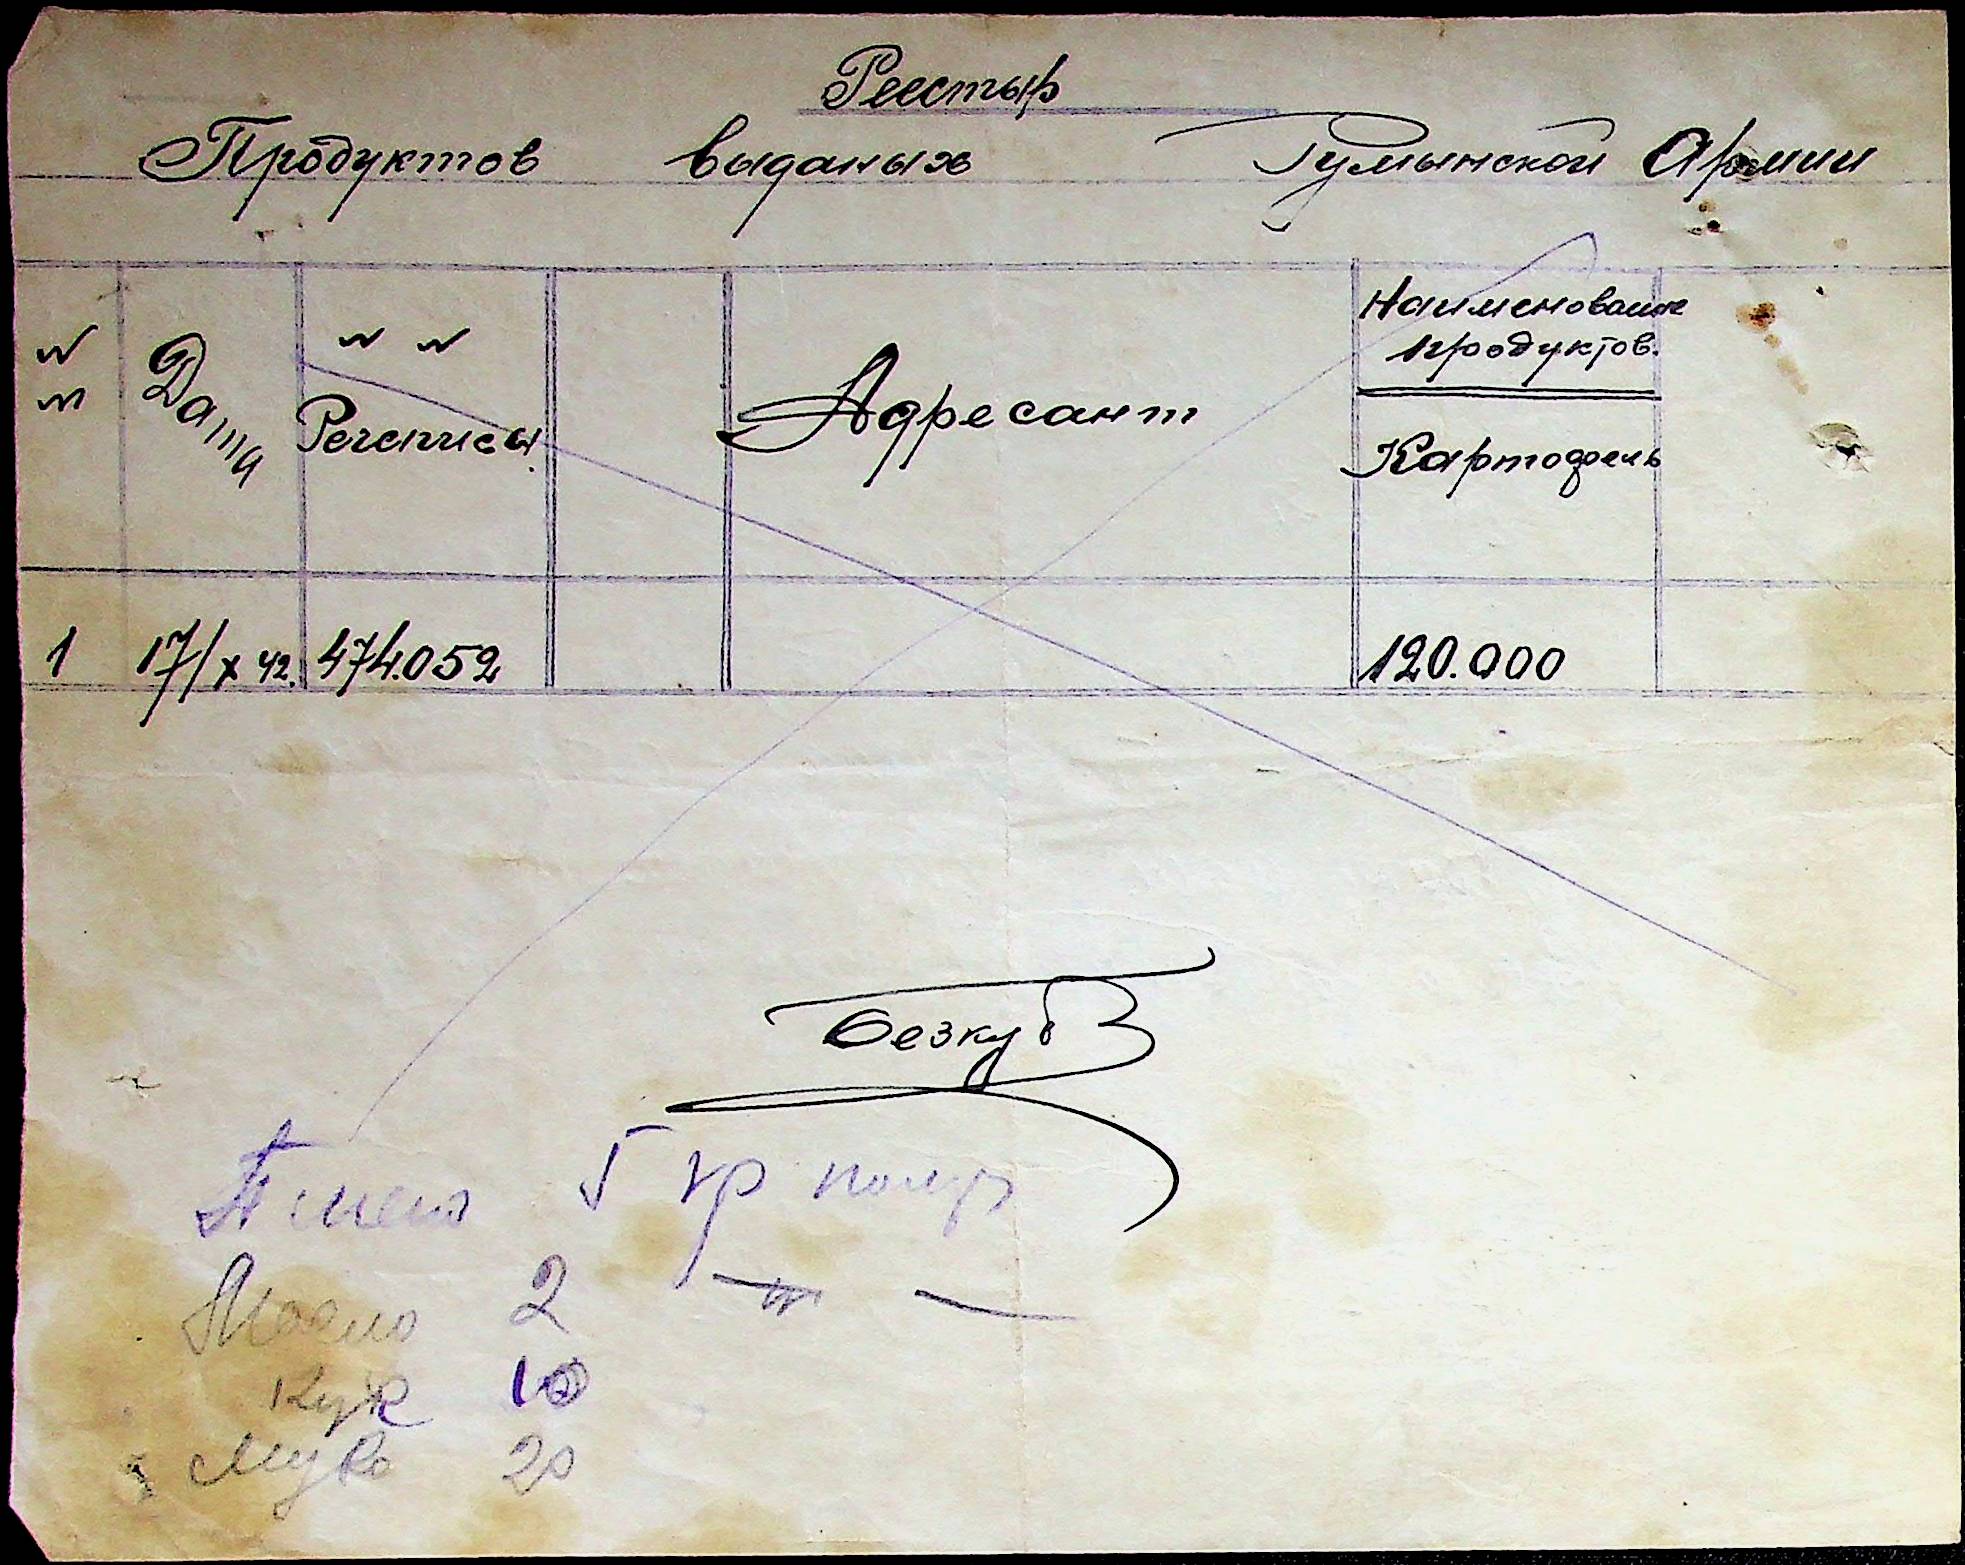 Реестыр
Продуктов выданых Румынской Армии
№ № Дата № № Рецеписы Адресант Наименование продуктов. Картофель
1 17/X 42. 474.052 120.000
Безкуб
5 кр
Масло 2 — " —
Кук 10
Мука 20